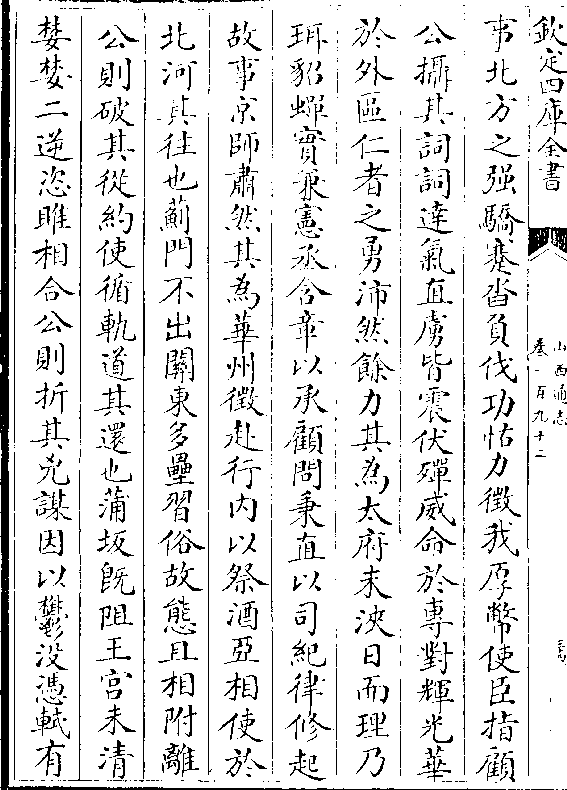 欽定四庫全書
山西通志
卷一百九十二
韦北方之强驕蹇沓負伐功怙力徴我厚幣使臣指顧
公攝其詞詞達氣直虜皆震伏殫威命於專對輝光華
於外區仁者之勇沛然餘力其為太府末浹日而理乃
珥貂蟬實兼憲丞含章以承顧問秉直以司紀律修起
故事京師肅然其為華州徴赴行内以祭酒亞相使於
北河其往也薊門不出關東多壘習俗故態且相附離
公則破其從約使循軌道其還也蒲坂旣阻王宫未清
婪婪二逆恣雎相合公則折其兇謀因以鬱没憑軾有